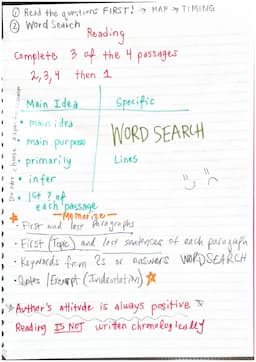 ① Read the questions FIRST! → MAP → TIMING
② Word Search
Reading
Complete 3 of the 4 passages
2,3,4 then 1
Main Idea
Specific
• main idea
• main purpose
WORD SEARCH
• primarily
Lines
• infer
• 1st ? of
each passage
— Memorize —
• First and last Paragraphs
• First (Topic) and last sentences of each paragraph
• Keywords from ?s or answers WORD SEARCH
• Quotes / Excerpt (Indentation)
Author's attitude is always positive
Reading IS NOT written chronologically